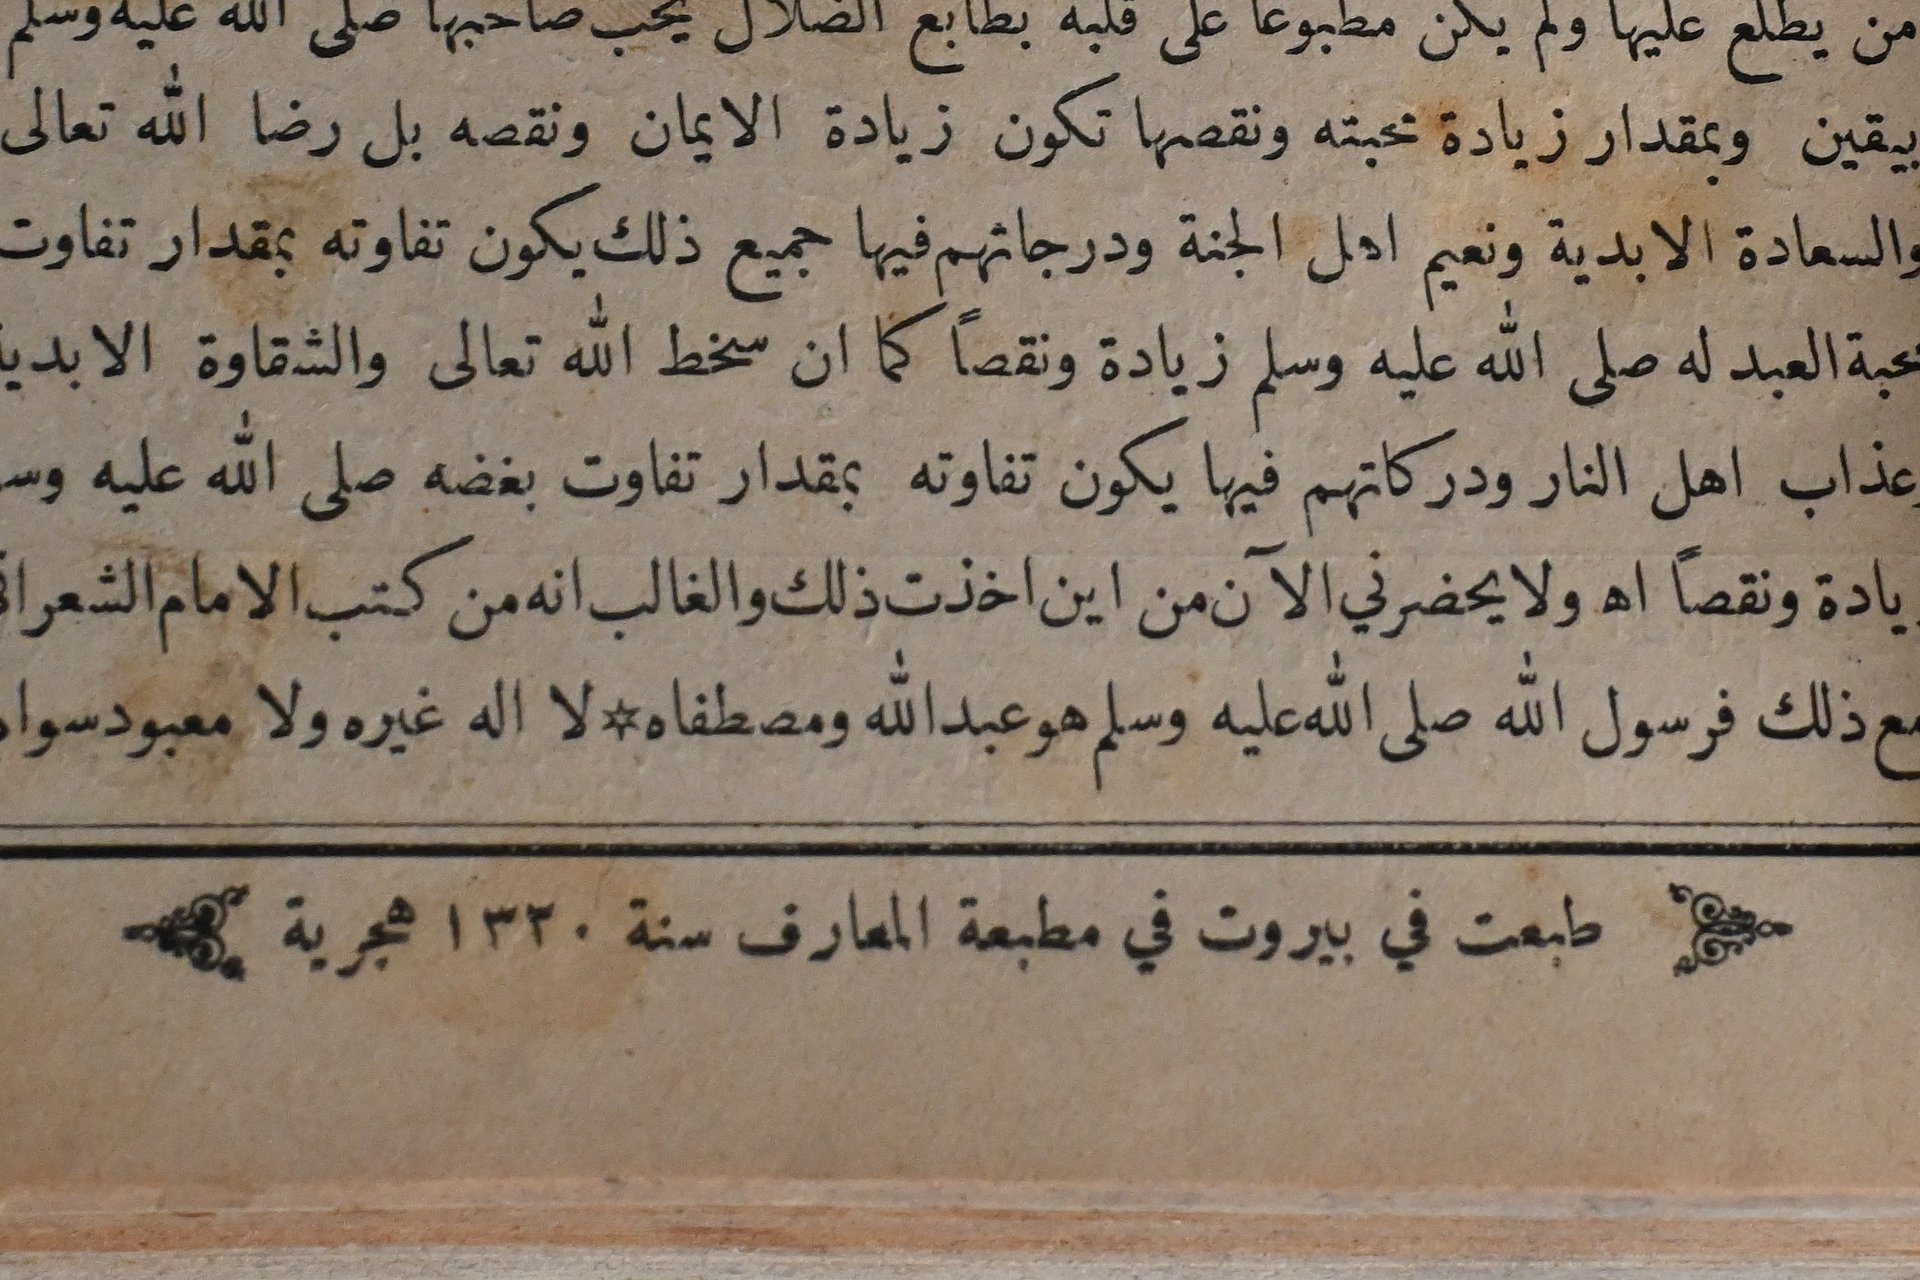 من يطلع عليها ولم يكن مطبوعا على قلبه بطابع الضلال يحب صاحبها صلى الله عليه وسلم
بيقين وبمقدار زيادة محبته ونقصها تكون زيادة الايمان ونقصه بل رضا الله تعالى
والسعادة الابدية ونعيم اهل الجنة ودرجاتهم فيها جميع ذلك يكون تفاوته بمقدار تفاوت
محبة العبد له صلى الله عليه وسلم زيادة ونقصاً كما ان سخط الله تعالى والشقاوة الابدية
وعذاب اهل النار ودركاتهم فيها يكون تفاوته بمقدار تفاوت بغضه صلى الله عليه
زيادة ونقصاً اه ولا يحضرني الآن من اين اخذت ذلك والغالب انه من كتب الامام الشعراني
مع ذلك فرسول الله صلى الله عليه وسلم هو عبد الله ومصطفاه ☆ لا اله غيره ولا معبود سواه
طبعت في بيروت في مطبعة المعارف سنة ١٣٣٠ هجرية